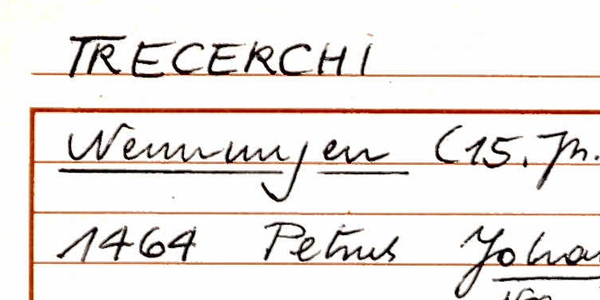 TRECERCHI
Nennungen (15. Jh.
1464 Petrus Joha